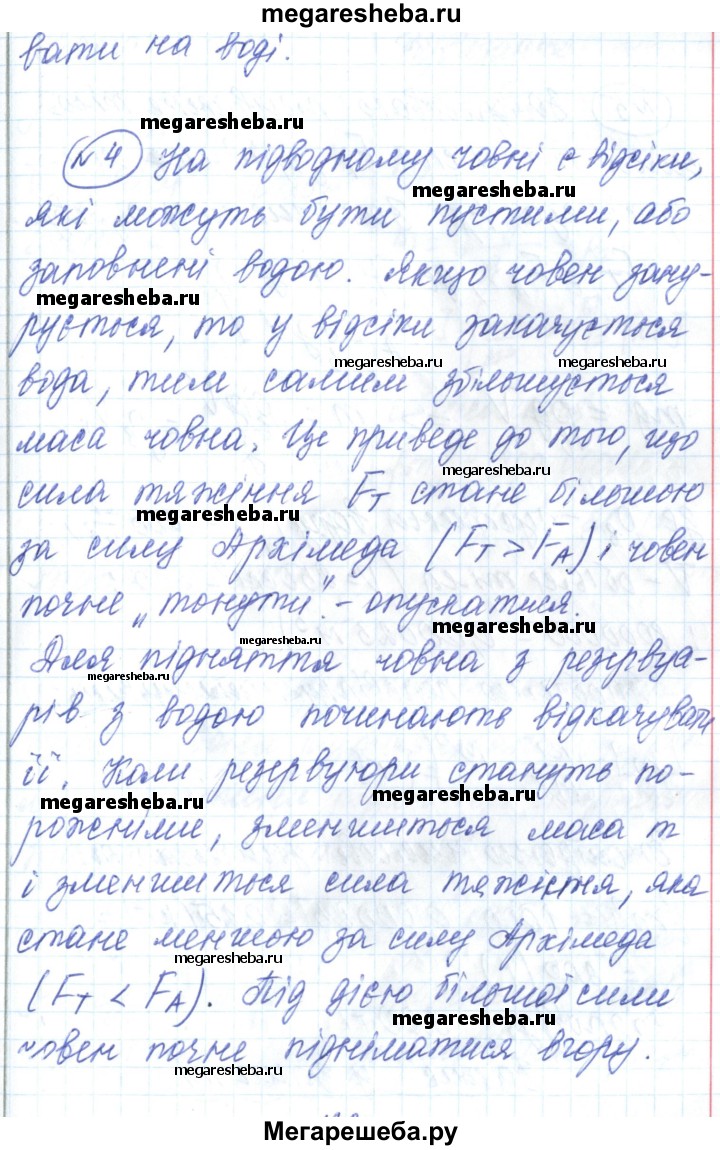 megaresheba.ru
вати на воді.
megaresheba.ru
№ 4 На підводному човні є відсіки,
megaresheba.ru
які можуть бути пустими, або
заповнені водою. Якщо човен зану-
megaresheba.ru
рується, то у відсіки закачується
megaresheba.ru megaresheba.ru
вода, тим самим збільшується
маса човна. Це приведе до того, що
megaresheba.ru
сила тяжіння Fт стане більшою
megaresheba.ru
за силу Архімеда (Fт > FА) і човен
почне „тонути" - опускатися.
megaresheba.ru megaresheba.ru
Для підняття човна з резервуа-
megaresheba.ru
рів з водою починають відкачувати
її. Коли резервуюри стануть по-
megaresheba.ru megaresheba.ru
рожніми, зменшиться маса m
і зменшиться сила тяжіння, яка
стане меншою за силу Архімеда
megaresheba.ru
(Fт < FА). Під дією більшої сили
megaresheba.ru
човен почне підніматися вгору.
megaresheba.ru
Мегарешеба.ру